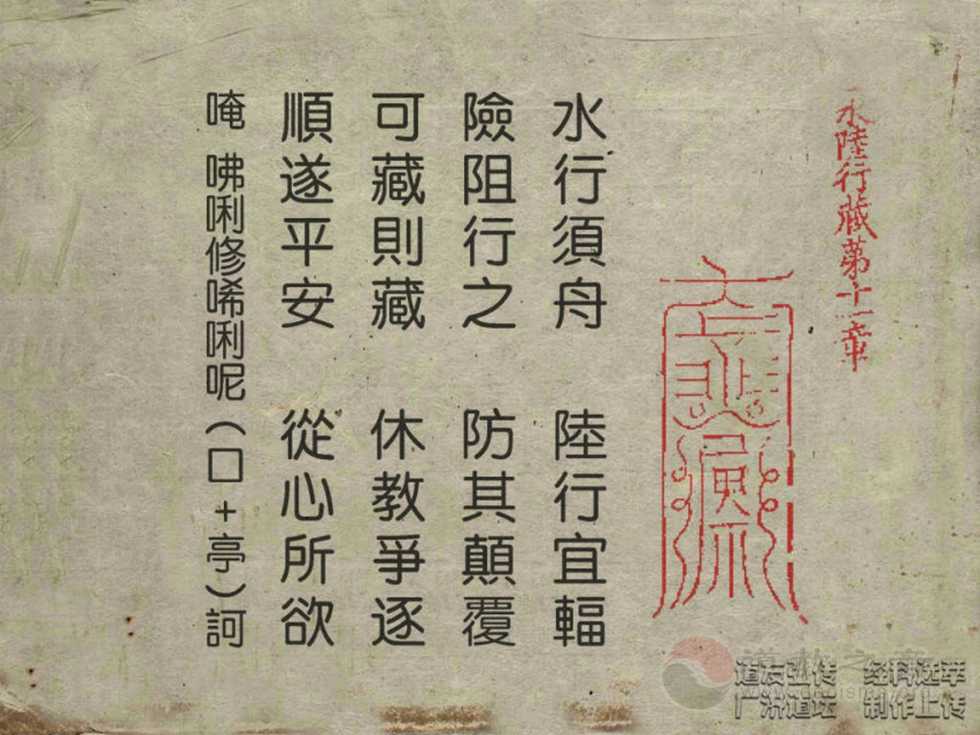 水陸行藏第十一章
水行須舟 陸行宜輻
險阻行之 防其顛覆
可藏則藏 休教爭逐
順遂平安 從心所欲
唵 咈唎修唏唎呢(口+亭)訶
道友弘传 经科选萃
广洪道坛 制作上传